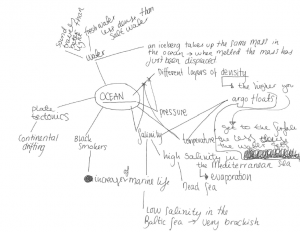 freshwater
less dense than
salt water
sound
travels
faster than
light
water
an iceberg takes up the same mass in
the ocean → when melted the mass has
just been displaced
Different layers of density
the higher you
argo floats
get to the surface
the less
the water
OCEAN
pressure
plate
tectonics
Continental
drifting
Black
smokers
salinity
temperature
high salinity in
the Mediterranean Sea
evaporation
Dead Sea
of marine life
Low salinity in the
Baltic Sea → very brackish